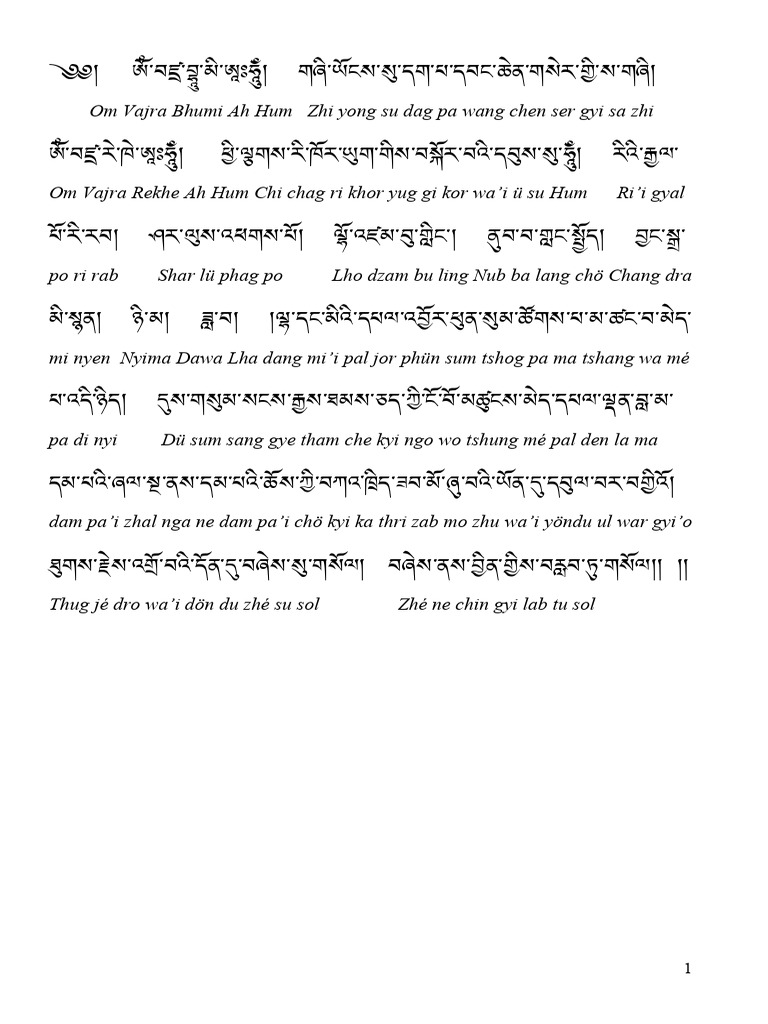 ༄༅། ཨོཾ་བཛྲ་བྷཱུ་མི་ཨཱཿཧཱུྃ། གཞི་ཡོངས་སུ་དག་པ་དབང་ཆེན་གསེར་གྱི་ས་གཞི།
Om Vajra Bhumi Ah Hum Zhi yong su dag pa wang chen ser gyi sa zhi
ཨོཾ་བཛྲ་རེ་ཁེ་ཨཱཿཧཱུྃ། ཕྱི་ལྕགས་རི་ཁོར་ཡུག་གིས་བསྐོར་བའི་དབུས་སུ་ཧཱུྃ། རིའི་རྒྱལ་
Om Vajra Rekhe Ah Hum Chi chag ri khor yug gi kor wa’i ü su Hum Ri’i gyal
པོ་རི་རབ། ཤར་ལུས་འཕགས་པོ། ལྷོ་འཛམ་བུ་གླིང་། ནུབ་བ་གླང་སྤྱོད། བྱང་སྒྲ་
po ri rab Shar lü phag po Lho dzam bu ling Nub ba lang chö Chang dra
མི་སྙན། ཉི་མ། ཟླ་བ། །ལྷ་དང་མིའི་དཔལ་འབྱོར་ཕུན་སུམ་ཚོགས་པ་མ་ཚང་བ་མེད་
mi nyen Nyima Dawa Lha dang mi’i pal jor phün sum tshog pa ma tshang wa mé
པ་འདི་ཉིད། དུས་གསུམ་སངས་རྒྱས་ཐམས་ཅད་ཀྱི་ངོ་བོ་མཚུངས་མེད་དཔལ་ལྡན་བླ་མ་
pa di nyi Dü sum sang gye tham che kyi ngo wo tshung mé pal den la ma
དམ་པའི་ཞལ་སྔ་ནས་དམ་པའི་ཆོས་ཀྱི་བཀའ་ཁྲིད་ཟབ་མོ་ཞུ་བའི་ཡོན་དུ་དབུལ་བར་བགྱིའོ།
dam pa’i zhal nga ne dam pa’i chö kyi ka thri zab mo zhu wa’i yöndu ul war gyi’o
ཐུགས་རྗེས་འགྲོ་བའི་དོན་དུ་བཞེས་སུ་གསོལ། བཞེས་ནས་བྱིན་གྱིས་བརླབ་ཏུ་གསོལ།། །།
Thug jé dro wa’i dön du zhé su sol Zhé ne chin gyi lab tu sol
1